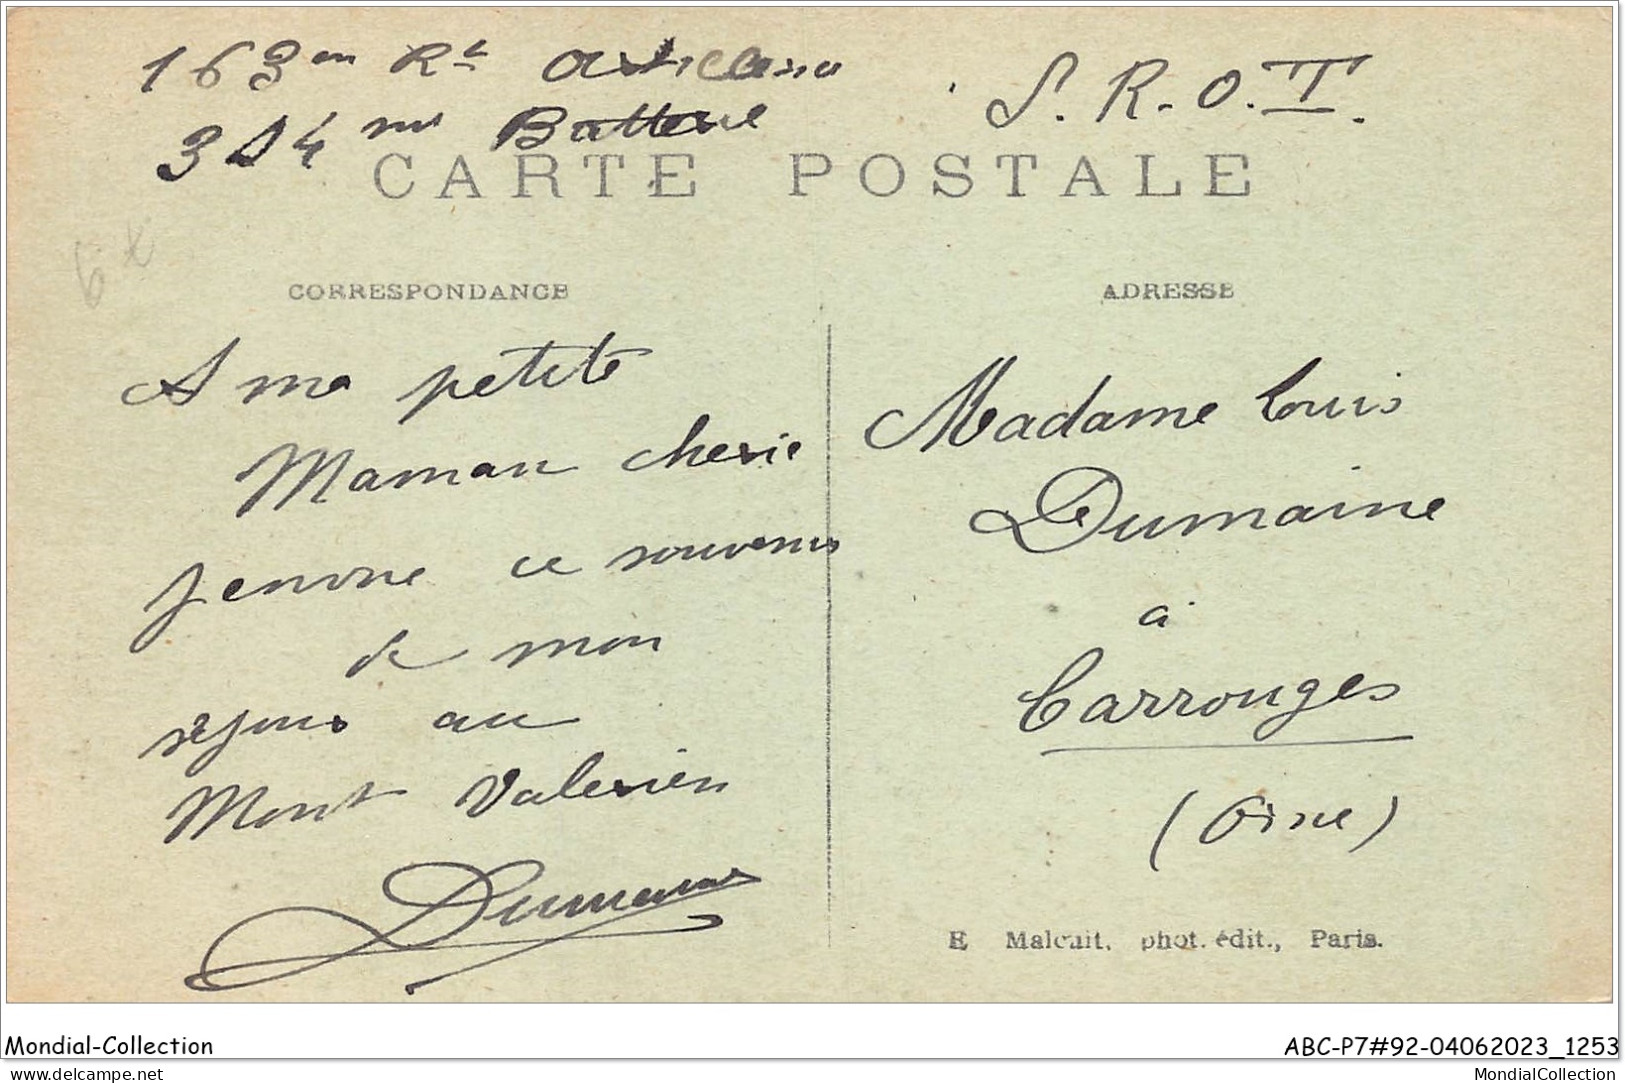 163em Rt Artillerie
S. R. O. T.
314me Batterie
CARTE POSTALE
6 t
CORRESPONDANCE
ADRESSE
A ma petite
Maman cherie
J envoie ce souvenir
de mon
sejour au
Mont Valerien
Dumaine
Madame Louis
Dumaine
à
Carrouges
(Orne)
E Malcuit, phot. édit., Paris.
Mondial-Collection
ABC-P7#92-04062023_1253
delcampe.net
MondialCollection